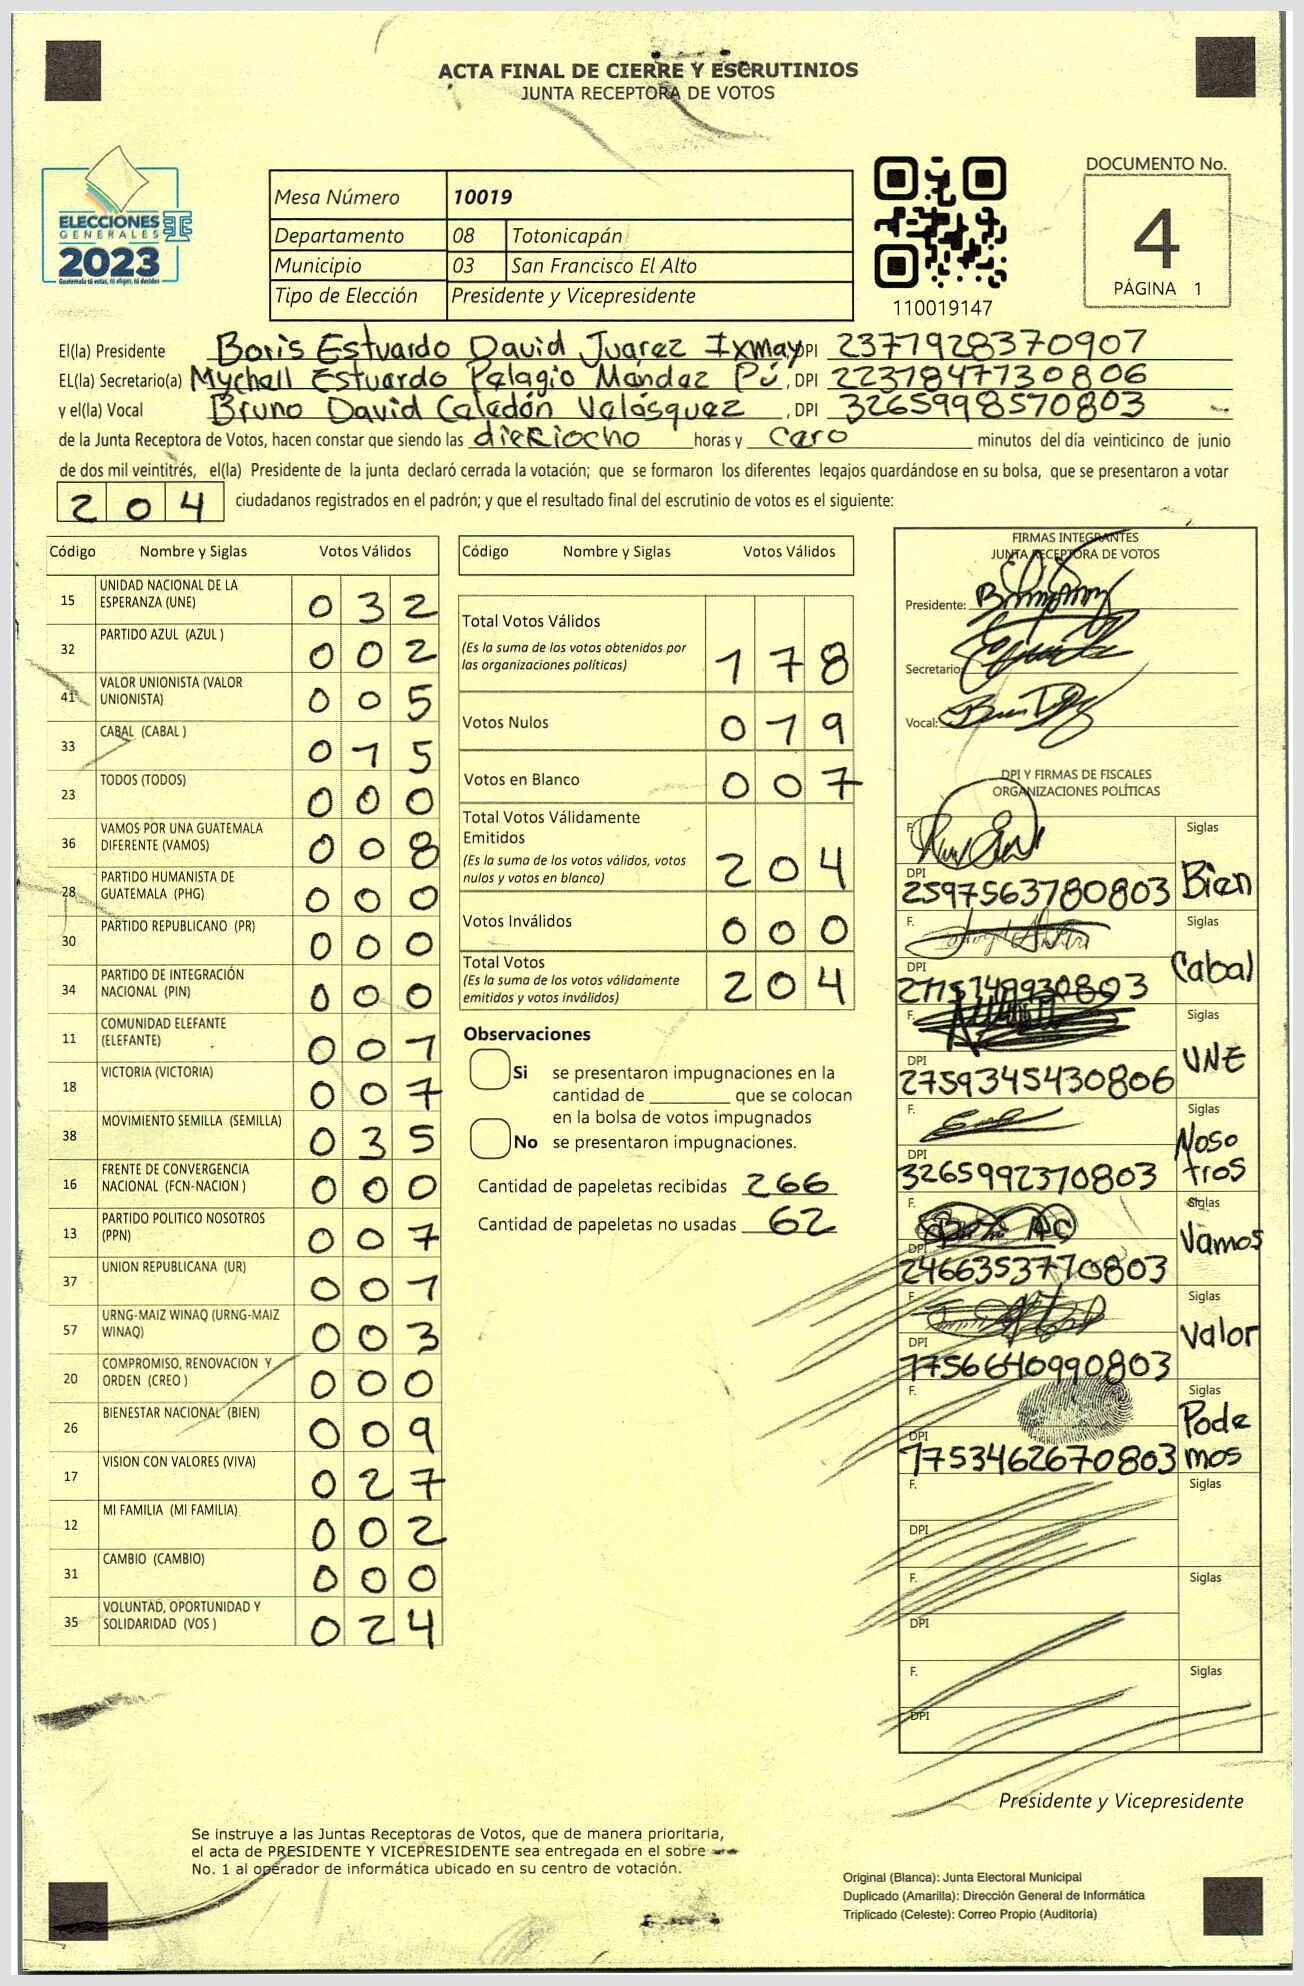 ACTA FINAL DE CIERRE Y ESCRUTINIOS
JUNTA RECEPTORA DE VOTOS
ELECCIONES
GENERALES
2023
Guatemala tú votas, tú eliges, tú decides
Mesa Número 10019
Departamento 08 Totonicapán
Municipio 03 San Francisco El Alto
Tipo de Elección Presidente y Vicepresidente
110019147
DOCUMENTO No.
4
PÁGINA 1
El(la) Presidente Boris Estuardo David Juarez Ixmay, DPI 2377928370907
EL(la) Secretario(a) Mychall Estuardo Pelagio Mández Pú, DPI 2231847730806
y el(la) Vocal Bruno David Caledón Valásquez, DPI 3265998570803
de la Junta Receptora de Votos, hacen constar que siendo las dieciocho horas y caro minutos del día veinticinco de junio
de dos mil veintitrés, el(la) Presidente de la junta declaró cerrada la votación; que se formaron los diferentes legajos quardándose en su bolsa, que se presentaron a votar
204 ciudadanos registrados en el padrón; y que el resultado final del escrutinio de votos es el siguiente:
Código Nombre y Siglas Votos Válidos
15 UNIDAD NACIONAL DE LA ESPERANZA (UNE) 032
32 PARTIDO AZUL (AZUL ) 002
41 VALOR UNIONISTA (VALOR UNIONISTA) 005
33 CABAL (CABAL ) 015
23 TODOS (TODOS) 000
36 VAMOS POR UNA GUATEMALA DIFERENTE (VAMOS) 008
28 PARTIDO HUMANISTA DE GUATEMALA (PHG) 000
30 PARTIDO REPUBLICANO (PR) 000
34 PARTIDO DE INTEGRACIÓN NACIONAL (PIN) 000
11 COMUNIDAD ELEFANTE (ELEFANTE) 001
18 VICTORIA (VICTORIA) 007
38 MOVIMIENTO SEMILLA (SEMILLA) 035
16 FRENTE DE CONVERGENCIA NACIONAL (FCN-NACION ) 000
13 PARTIDO POLITICO NOSOTROS (PPN) 007
37 UNION REPUBLICANA (UR) 001
57 URNG-MAIZ WINAQ (URNG-MAIZ WINAQ) 003
20 COMPROMISO, RENOVACION Y ORDEN (CREO ) 000
26 BIENESTAR NACIONAL (BIEN) 009
17 VISION CON VALORES (VIVA) 027
12 MI FAMILIA (MI FAMILIA) 002
31 CAMBIO (CAMBIO) 000
35 VOLUNTAD, OPORTUNIDAD Y SOLIDARIDAD (VOS ) 024
Código Nombre y Siglas Votos Válidos
Total Votos Válidos
(Es la suma de los votos obtenidos por
las organizaciones políticas) 178
Votos Nulos 019
Votos en Blanco 007
Total Votos Válidamente
Emitidos
(Es la suma de los votos válidos, votos
nulos y votos en blanco) 204
Votos Inválidos 000
Total Votos
(Es la suma de los votos válidamente
emitidos y votos inválidos) 204
Observaciones
Si se presentaron impugnaciones en la
cantidad de ________ que se colocan
en la bolsa de votos impugnados
No se presentaron impugnaciones.
Cantidad de papeletas recibidas 266
Cantidad de papeletas no usadas 62
FIRMAS INTEGRANTES
JUNTA RECEPTORA DE VOTOS
Presidente:
Secretario:
Vocal:
DPI Y FIRMAS DE FISCALES
ORGANIZACIONES POLÍTICAS
F. Siglas
DPI 2597563780803 Bien
F. Siglas
DPI Cabal
F. Siglas
DPI 2759345430806 UNE
F. Siglas
DPI 3265992370803 Nosotros
F. Siglas
DPI 2466353770803 Vamos
F. Siglas
DPI 1756640990803 Valor
F. Siglas
DPI 1753462670803 Podemos
F. Siglas
DPI
F. Siglas
DPI
F. Siglas
DPI
Presidente y Vicepresidente
Se instruye a las Juntas Receptoras de Votos, que de manera prioritaria,
el acta de PRESIDENTE Y VICEPRESIDENTE sea entregada en el sobre
No. 1 al operador de informática ubicado en su centro de votación.
Original (Blanca): Junta Electoral Municipal
Duplicado (Amarilla): Dirección General de Informática
Triplicado (Celeste): Correo Propio (Auditoría)